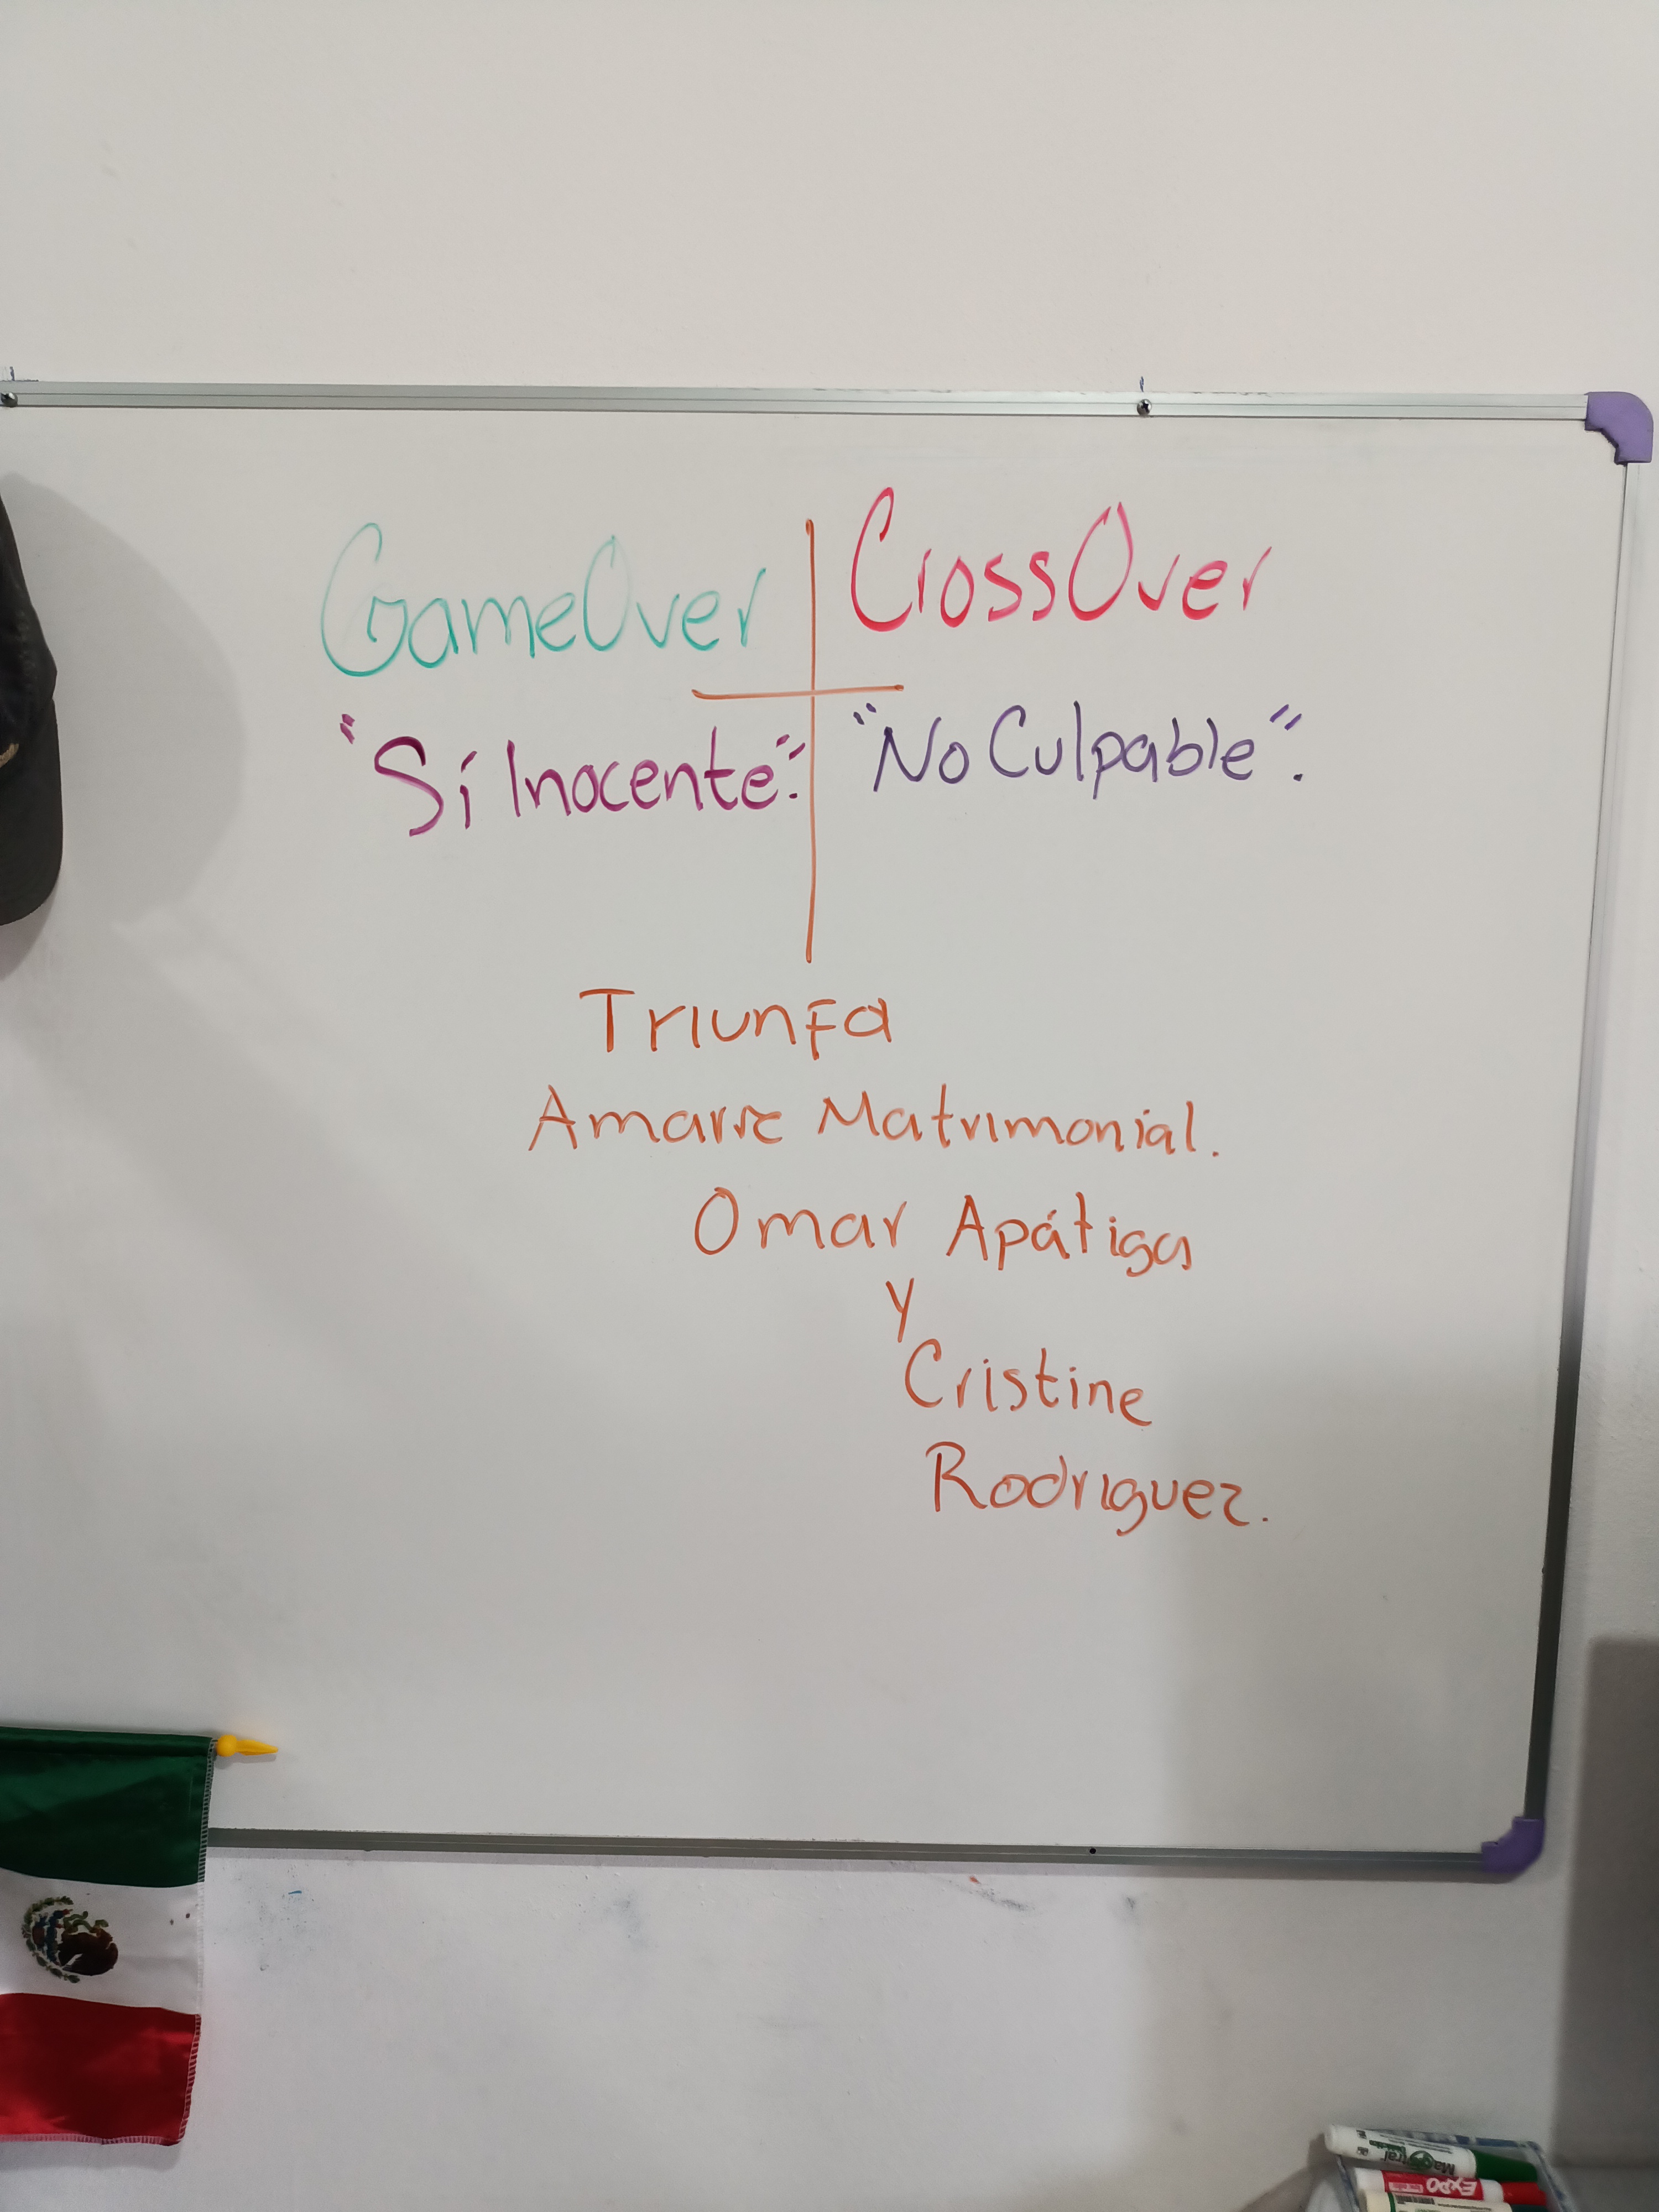 GameOver CrossOver
"Sí Inocente". "No Culpable".
Triunfa
Amarre Matrimonial.
Omar Apátiga
y
Cristine
Rodriguez.
EXPO